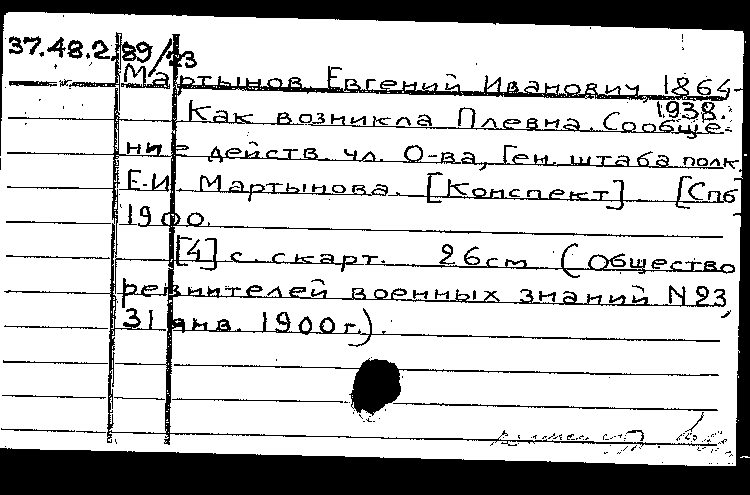 37.48.2.89/23
Мартынов, Евгений Иванович, 1864-
1938.
Как возникла Плевна. Сообще-
ние действ. чл. О-ва, Ген. штаба полк.
Е.И. Мартынова. [Конспект]. [Спб
1900.
[4] с. с карт. 26см (Общество
ревнителей военных знаний N23,
31 янв. 1900г.).